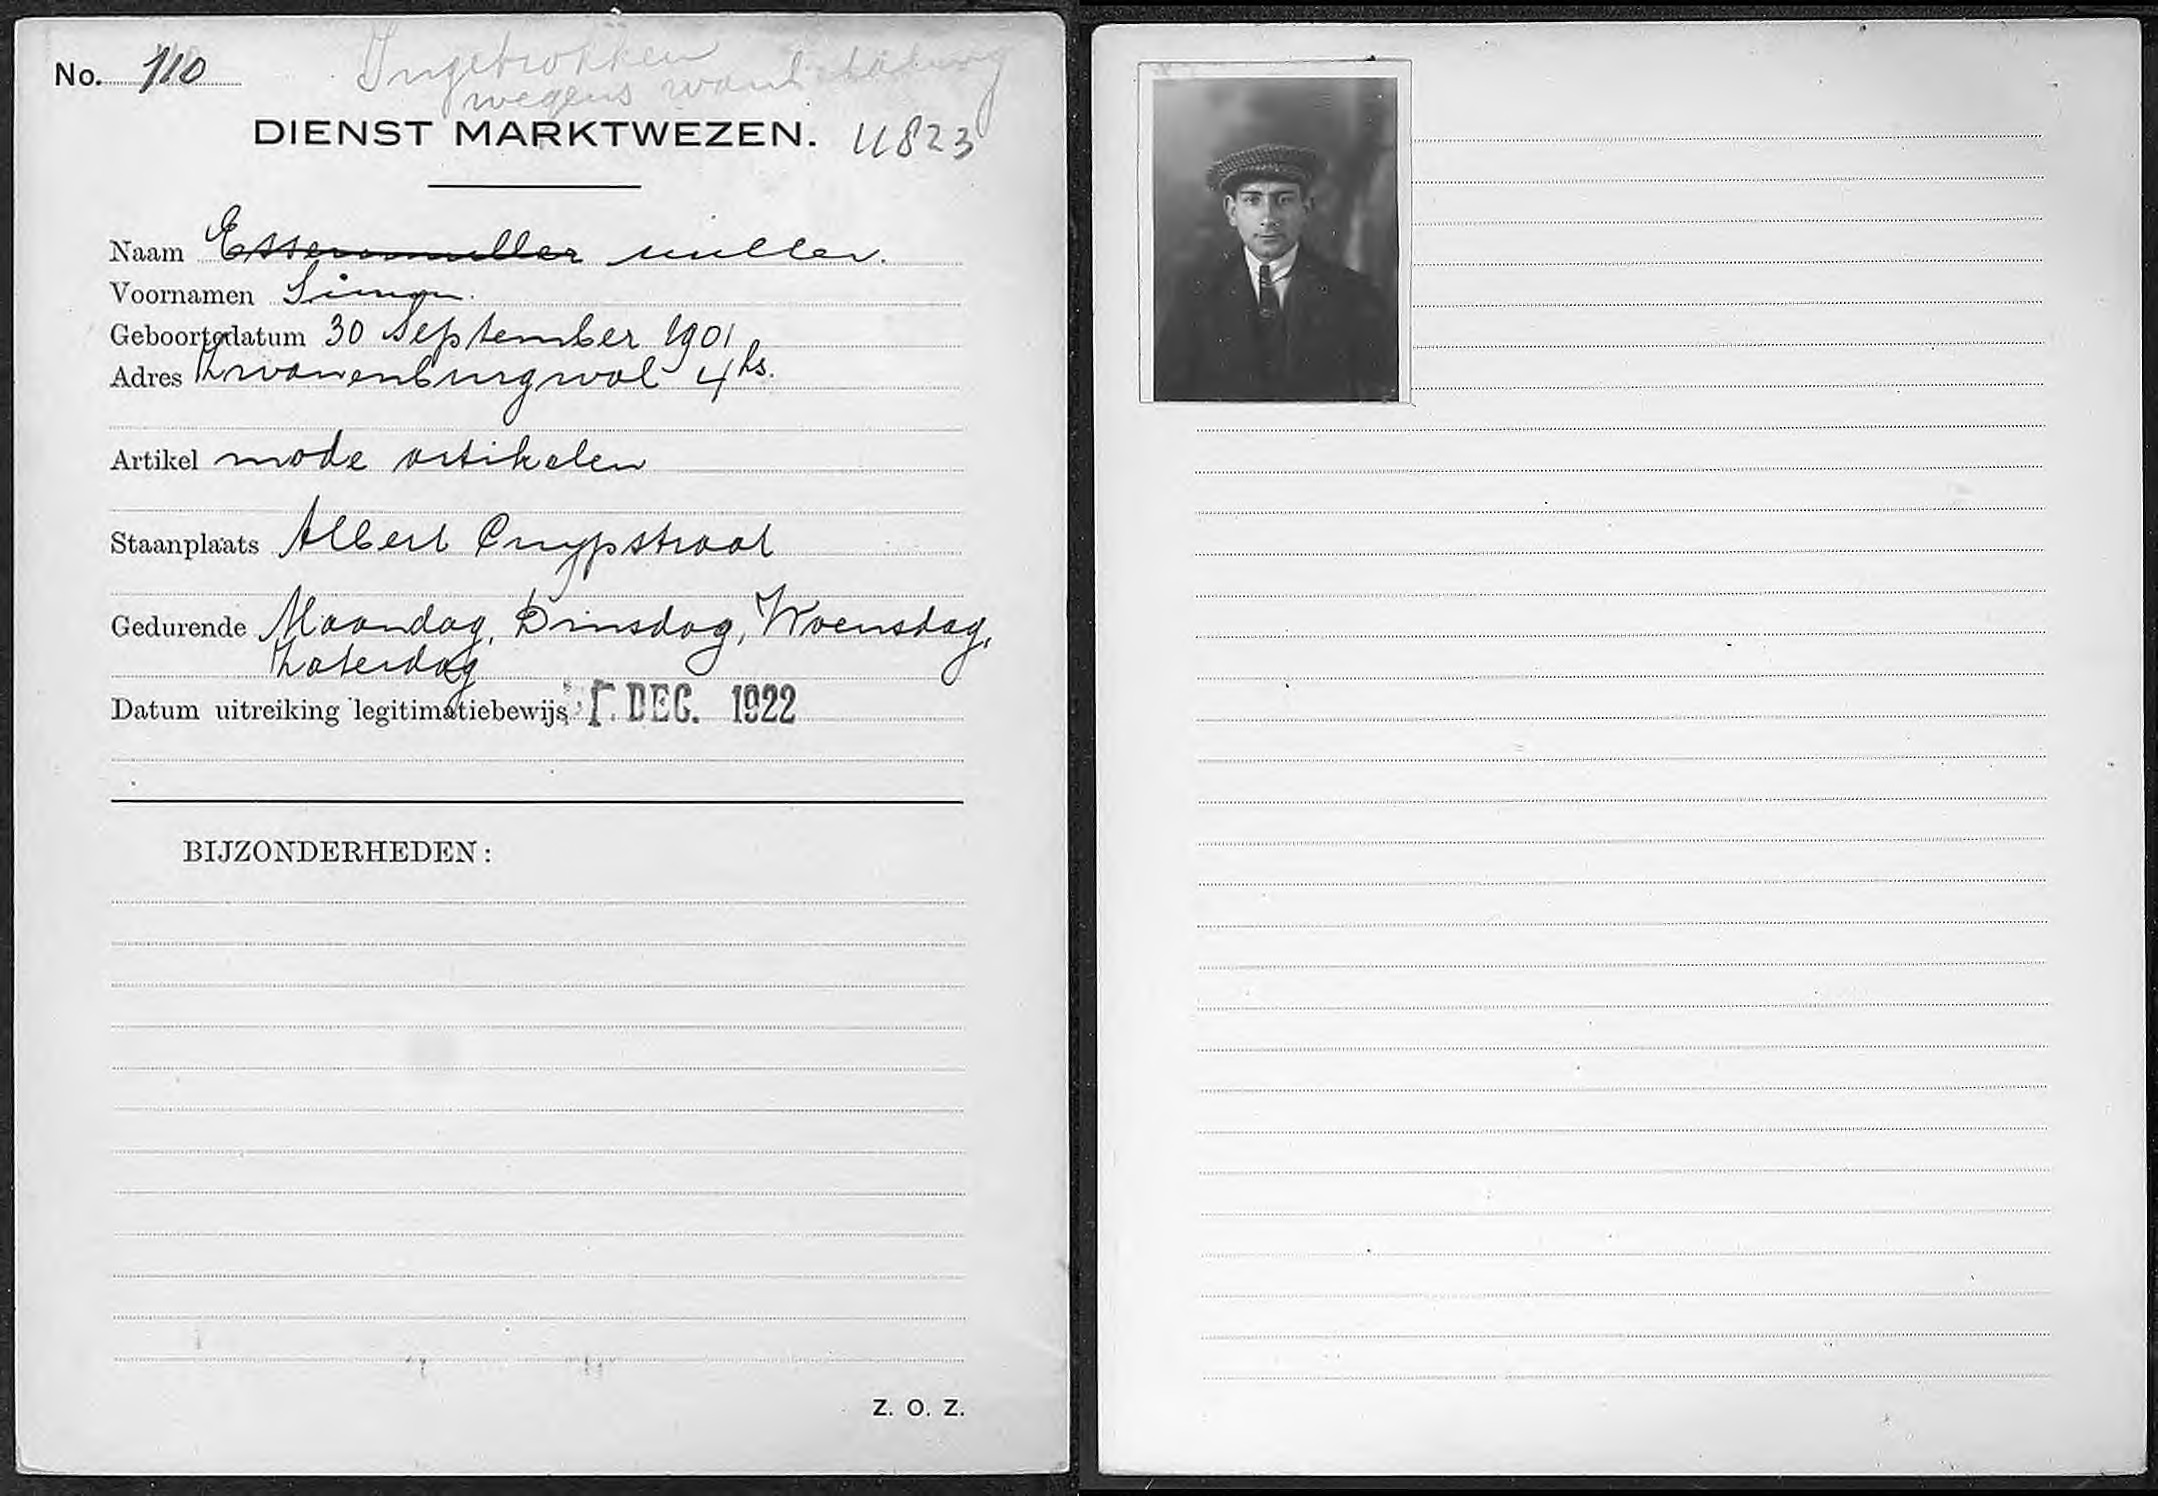 No. 110
Ingetrokken
wegens wanbetaling
DIENST MARKTWEZEN. 4823
Naam Essenmuller muller.
Voornamen Simon.
Geboortedatum 30 September 1901
Adres Zwanenburgwal 4 hs.
Artikel mode artikelen
Staanplaats Albert Cuypstraat
Gedurende Maandag, Dinsdag, Woensdag,
Zaterdag
Datum uitreiking legitimatiebewijs DEC. 1922
BIJZONDERHEDEN:
Z. O. Z.